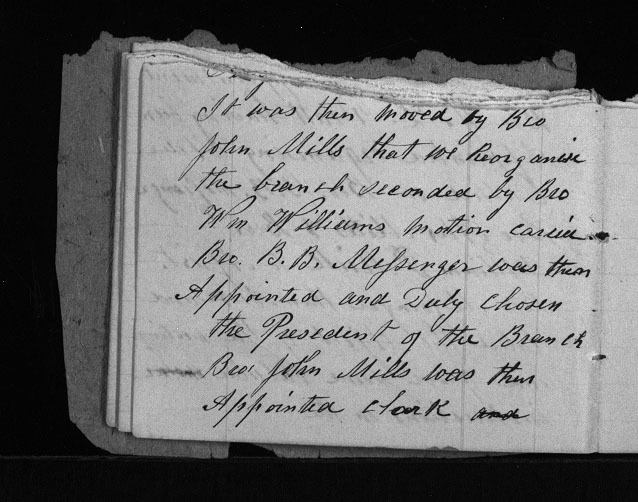 It was then moved by Bro
John Mills that we Reorganise
the branch seconded by Bro
Wm Williams Motion
Bro. B. B. Messenger was then
Appointed and Duly Chosen
the President of the Branch
Bro John Mills was then
Appointed Clark and